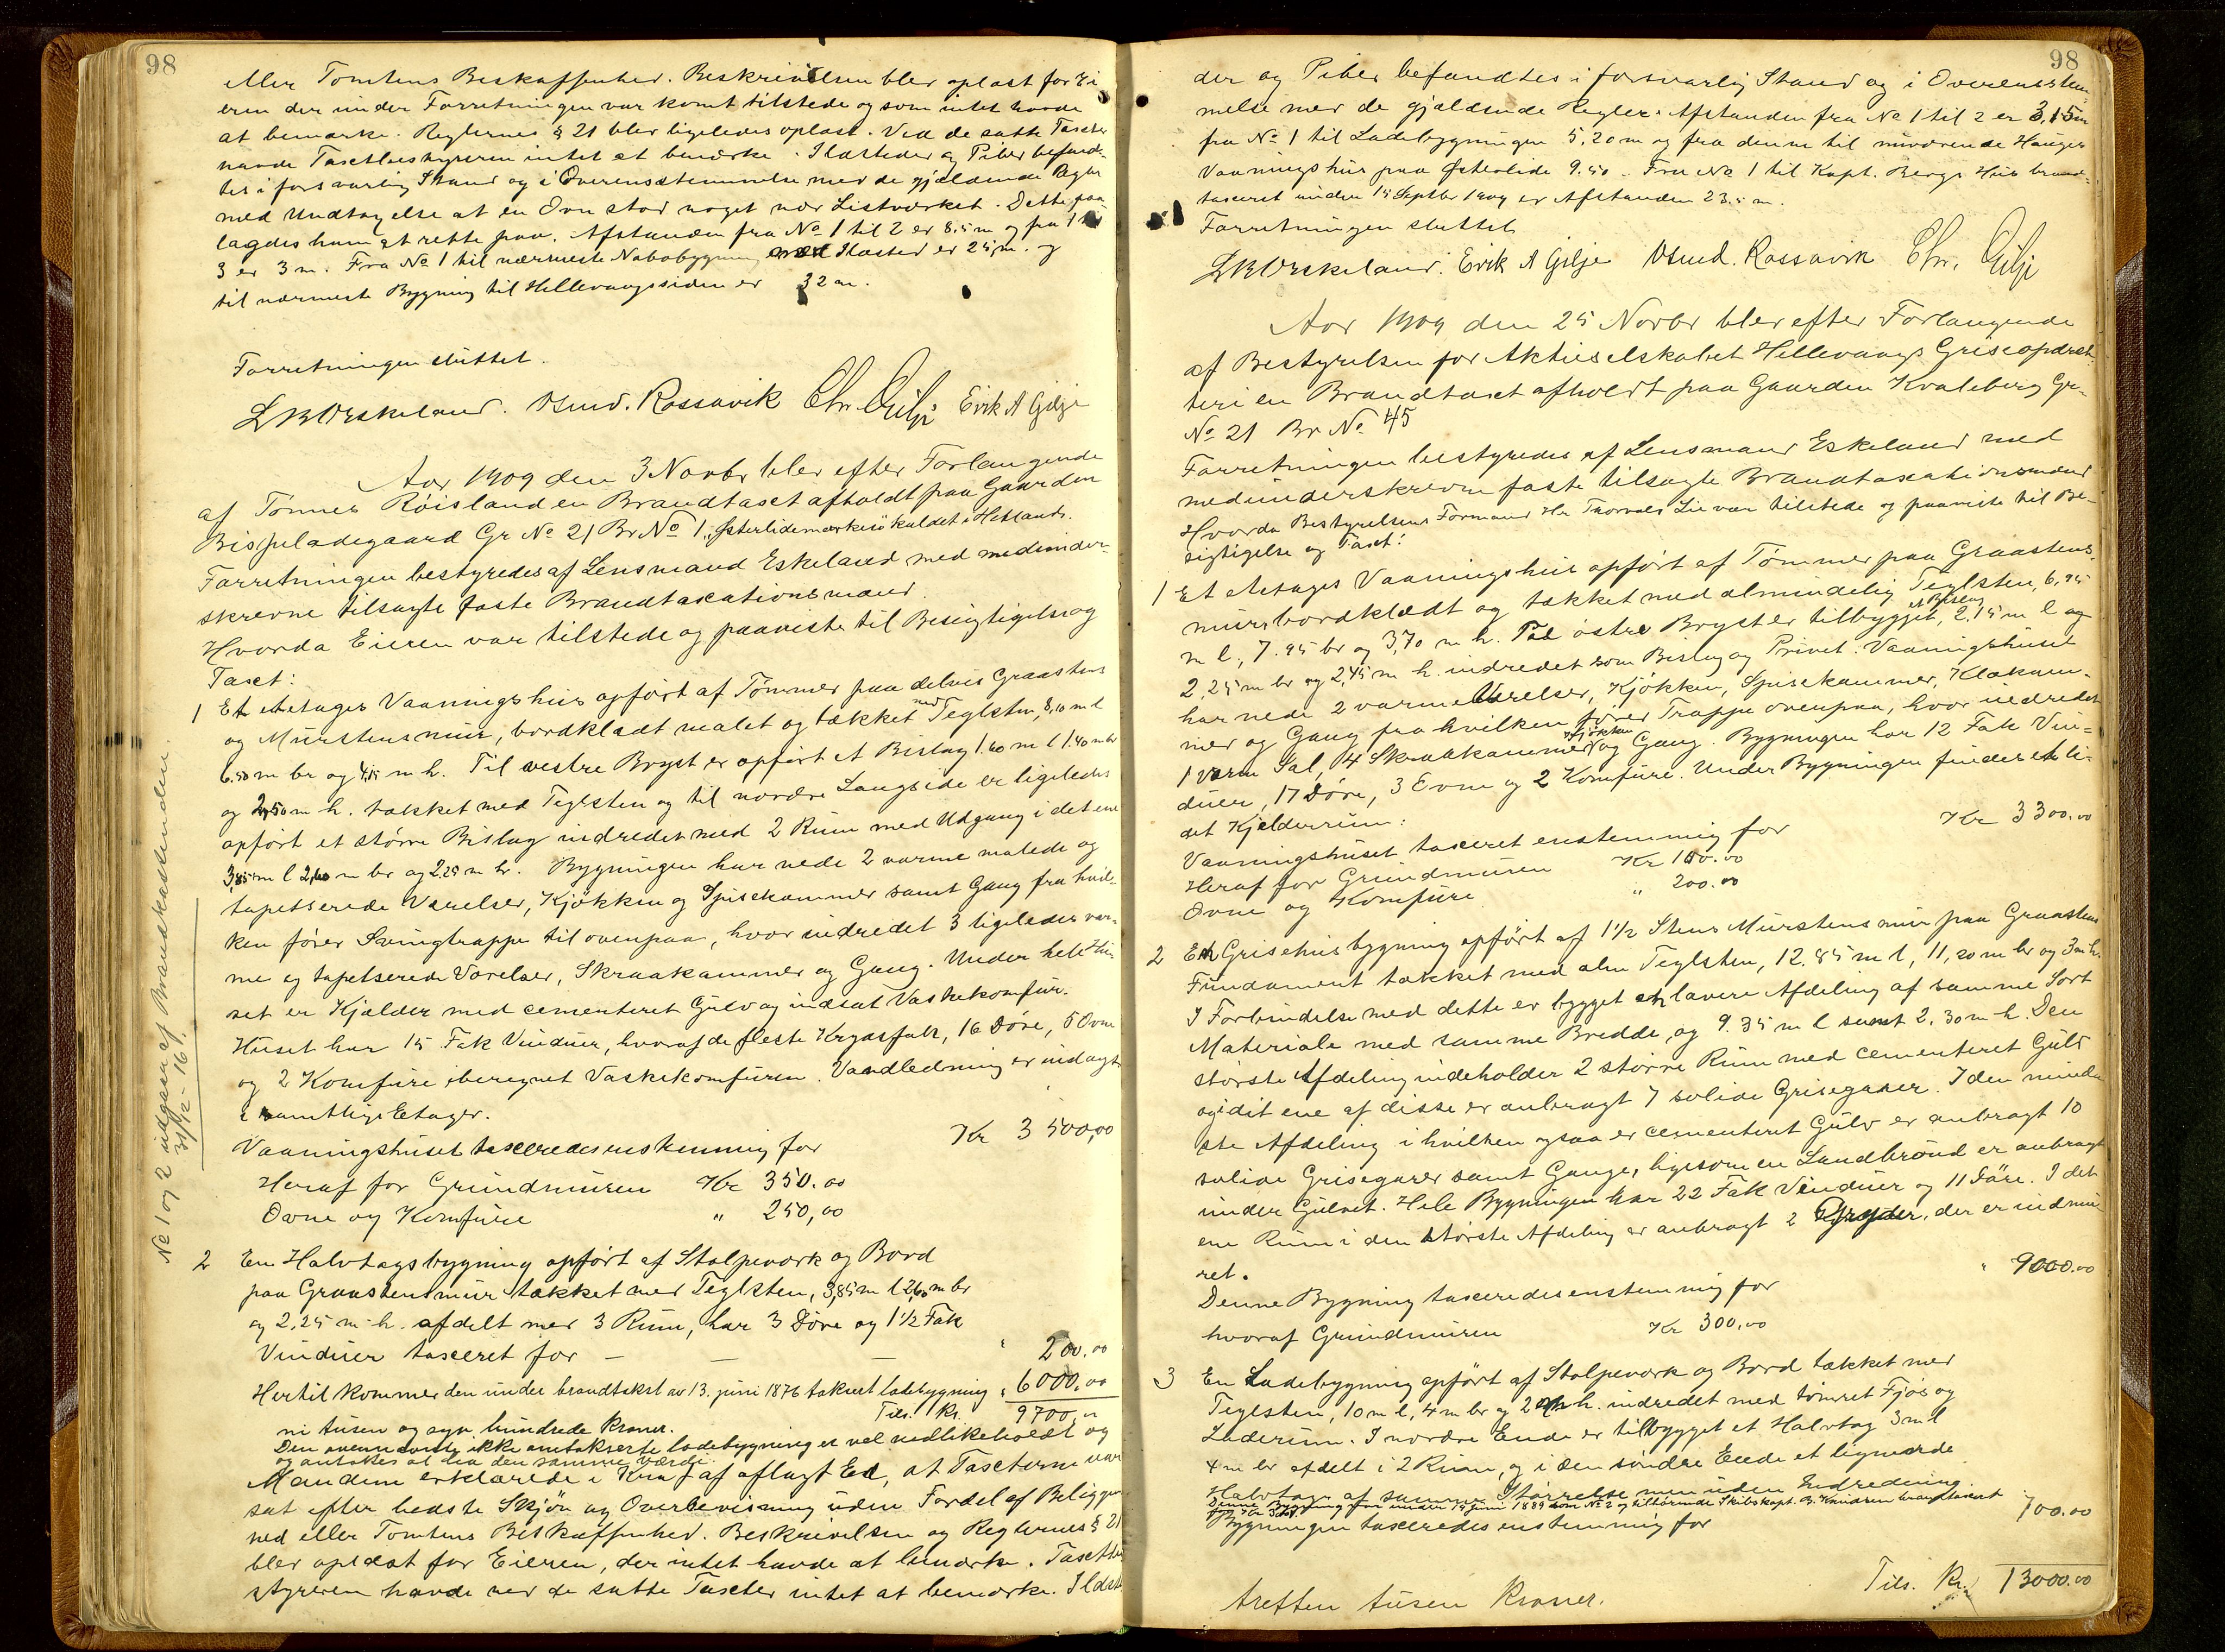 98
eller Tomtens Beskaffenhed. Beskrivelsen blev oplæst for Ei
eren der under Forretningen var komt tilstede og som intet havde
at bemærke. Reglernes § 21 blev ligeledes oplæst. Ved de satte Taxter
havde Taxtbestyreren intet at bemærke. Ildsteder og Piber befand-
tes i forsvarlig Stand og i Overensstemmelse med de gjældende Regler
med Undtagelse at en Ovn stod noget nær Listværket. Dette paa
lagdes ham at rette paa. Afstanden fra No 1 til 2 er 8,5 m og fra 1 til
3 er 3 m. Fra No 1 til nærmeste Nabobygning med Ildsted er 25, m. og
til nærmeste Bygning til Hillevaagssiden er 32 m.
Forretningen sluttet.
L B Eskeland. Osmd. Rossavik Chr. Gilje Erik A Gilje
Aar 1909 den 3 Novbr blev efter Forlangende
af Tønnes Röisland en Brandtaxt afholdt paa Gaarden
Bispeladegaard Gr No 21 Br No 1, Østerlidemarken kaldet i Hetland.
Forretningen bestyredes af Lensmand Eskeland med medunder-
skrevne tilsagte faste Brandtaxationsmænd.
Hvorda Eieren var tilstede og paaviste til Besigtigelse og
Taxt:
1 Et Etages Vaaningshus opført af Tømmer paa delvis Graastens
og Murstensmur, bordklædt malet og tækket med Teglsten, 8,10 m l
6.50 m br og 4,15 m h. Til vestre Bryst er opført et Bislag 1.60 m l 1.40 m br
og 2,50 m h. tækket med Teglsten og til nordre Langside er ligeledes
opført et större Bislag indredet med 2 Rum med Udgang i det ene
3,85 m l 2,60 m br og 2.25 m h. Bygningen har nede 2 varme malede og
tapetserede Værelser, Kjøkken og Spisekammer samt Gang fra hvil-
ken fører Svingtrappe til ovenpaa, hvor indredet 3 ligeledes var-
me og tapetserede Værelser, Skraakammer og Gang. Under hele Hu-
set er Kjælder med cementeret Gulv og indsat Vaskekomfur.
Huset har 15 Fak Vinduer, hvoraf de fleste Krydsfak, 16 Döre, 5 Ovne
og 2 Komfure iberegnet Vaskekomfuren. Vandledning er indlagt
i samtlige Etager.
Vaaningshuset taxeredes enstemmig for Kr 3500,00
Heraf for Grundmuren Kr 350.00
Ovne og Komfure " 250,00
2 En Halvtagsbygning opført af Stolpeværk og Bord
paa Graastensmur tækket med Teglsten, 3,85 m l 2,60 m br
og 2.25 m h. afdelt med 3 Rum, har 3 Döre og 1½ Fak
Vinduer taxeret for — — — " 200.00
Hertil kommer den under brandtakst av 13. juni 1876 takseret ladebygning " 6000,00
Tils. Kr. 9700,00
ni tusen og syv hundrede kroner.
Den ovennævnte ikke omtakserte ladebygning er vel vedlikeholdt og
og antakes at ha den samme værdi.
Mændene erklærede i Kraf af aflagt Ed, at Taxterne var
sat efter bedste Skjön og Overbevisning uden Fordel af Beliggen
hed eller Tomtens Beskaffenhed. Beskrivelsen og Reglernes § 21
blev oplæst for Eieren, der intet havde at bemærke. Taxtbe
styreren havde ved de satte Taxter intet at bemærke. Ildste
No 1 og 2 udgaar af Brandkassen siden
31/12 - 16.
98
der og Piber befandtes i forsvarlig Stand og i Overensstem-
melse med de gjældende Regler. Afstanden fra No 1 til 2 er 3,15 m
fra No 1 til Ladebygningen 5,20 m og fra denne til nuværende Hauges
Vaaningshus paa Østerlide 9.50 – Fra No 1 til Kapt. Bergs Hus brand-
taxeret under 15 Septbr 1909 er Afstanden 23.5 m.
Forretningen sluttet
L B Eskeland. Erik A Gilje Osmd. Rossavik Chr. Gilje
Aar 1909 den 25 Novbr blev efter Forlangende
af Bestyrelsen for Aktieselskabet Hillevaags Griseopdræt
teri en Brandtaxt afholdt paa Gaarden Kvaleberg Gr-
No 21 Br No 45
Forretningen bestyredes af Lensmand Eskeland med
medunderskrevne faste tilsagte Brandtaxationsmænd
Hvorda Bestyrelsens Formand Hr Thorvald Lie var tilstede og paaviste til Be-
sigtigelse og Taxt:
1 Et Etages Vaaningshus opført af Tømmer paa Graastens-
mur bordklædt og tækket med almindelig Teglsten, 6,95
m l, 7.95 br og 3,70 m h. Paa østre Bryst er tilbygget et Bislag, 2.15 m l og
2,25 m br og 2,45 m h. indredet som Bislag og Privet. Vaaningshuset
har nede 2 varme Værelser, Kjøkken, Spisekammer, Klækam-
mer og Gang fra hvilken fører Trappe ovenpaa, hvor indredet
1 varm Sal, 4 Skraakammer Kjøkken og Gang. Bygningen har 12 Fak Vin-
duer, 17 Döre, 3 Ovne og 2 Komfure. Under Bygningen findes et li-
det Kjelderrum:
Vaaningshuset taxeret enstemmig for Kr 3300.00
Heraf for Grundmuren Kr 100.00
Ovne og Komfure " 200.00
2 En Grisehusbygning opført af 1½ Stens Murstensmur paa Graastens
Fundament tækket med alm Teglsten, 12.85 m l, 11,20 m br og 3 m h.
I Forbindelse med dette er bygget en lavere Afdeling af samme Sort
Materiale med samme Bredde, og 9.35 m l samt 2.30 m h. Den
störste Afdeling indeholder 2 större Rum med cementeret Gulv
og i dit ene af disse er anbragt 7 solide Grisegarer. I den minde
ste Afdeling i hvilken ogsaa er cementeret Gulv er anbragt 10
solide Grisegarer samt Gange, ligesom en Landbrönd er anbragt
under Gulvet. Hele Bygningen har 22 Fak Vinduer og 11 Döre. I det
ene Rum i den störste Afdeling er anbragt 2 Gryder, der er indmu
ret.
Denne Bygning taxeredes enstemmig for " 9000.00
hvoraf Grundmuren Kr 300,00
3 En Ladebygning opført af Stolpeværk og Bord tækket med
Teglsten, 10 m l, 4 m br og 2 m h. indredet med tömret Fjös og
Laderum. I nordre Ende er tilbygget et Halvtag 3 m l
4 m br afdelt i 2 Rum, og i den söndre Ende et lignende
Halvtag af samme Störrelse men uden Indredning.
Denne Bygning før under 19 juni 1889 som No 2 og tilhörende Skibskapt. G. Knudsen brandtaxert
for Kr 300.
Bygningen taxeredes enstemmig for 700.00
Tils. Kr. 13000.00
tretten tusen kroner.